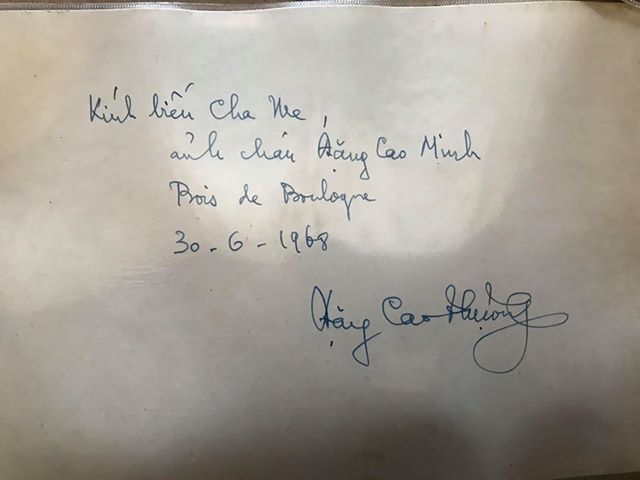 Kính biếu Cha Mẹ,
ảnh cháu Đặng Cao Minh
Bois de Boulogne
30-6-1968
Đặng Cao